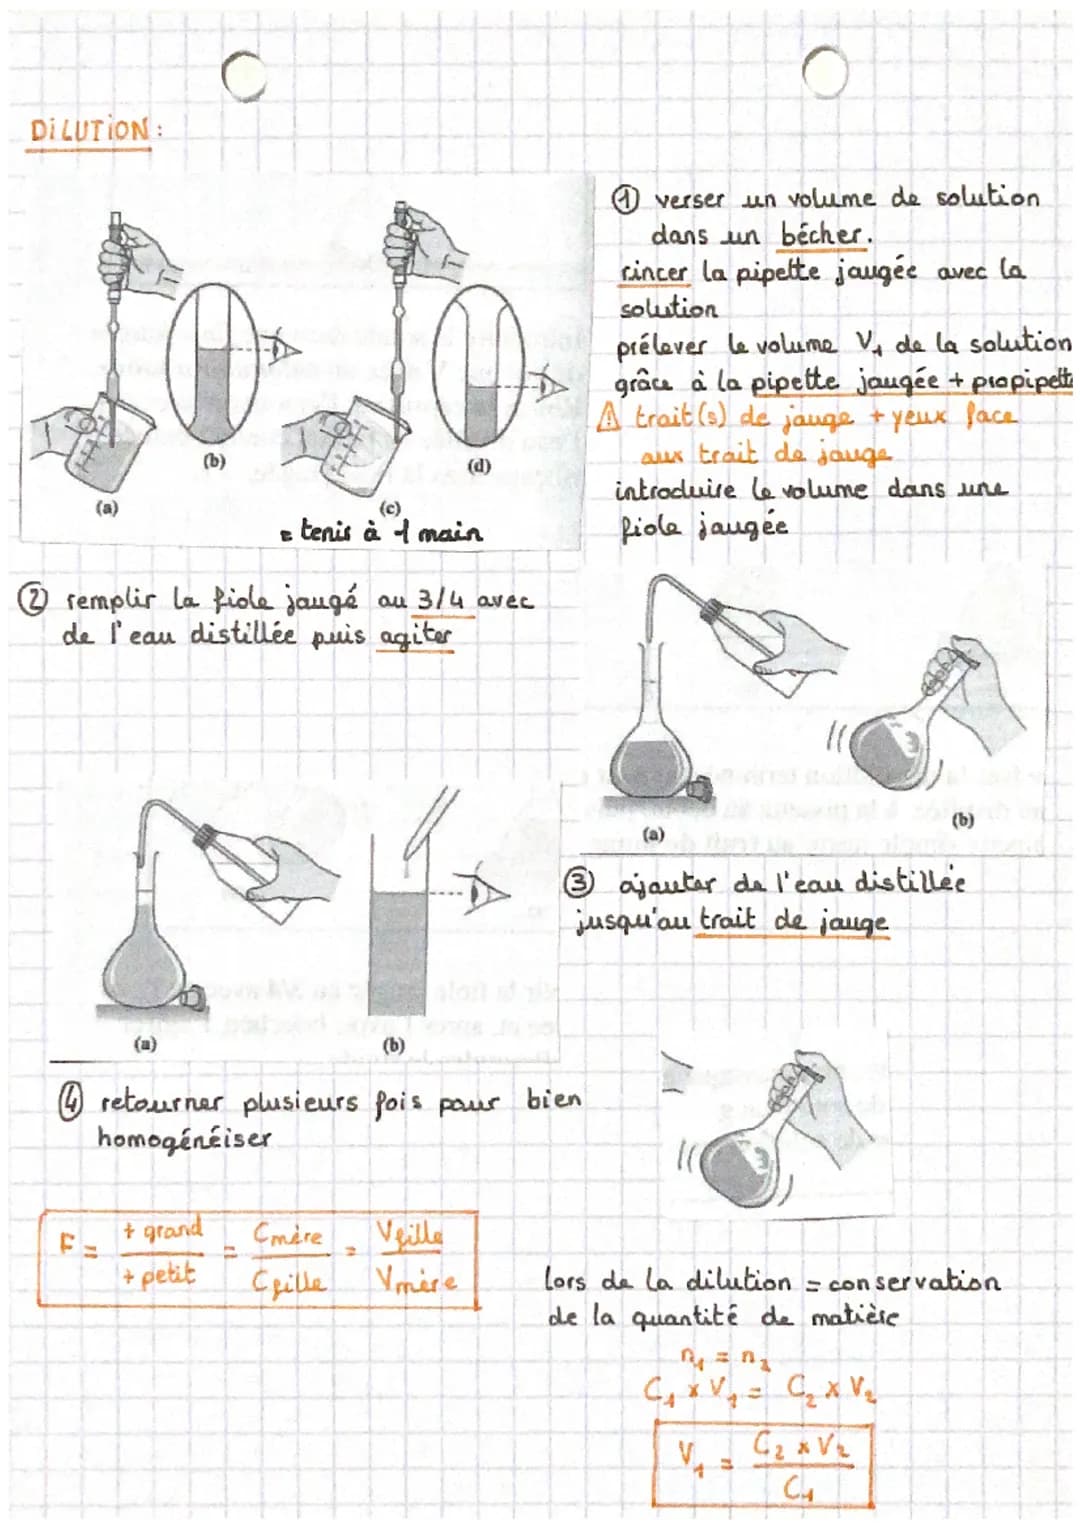 DILUTION :
① verser un volume de solution
dans un bécher.
rincer la pipette jaugée avec la
solution
prélever le volume V₁ de la solution
grâce à la pipette jaugée + propipette
⚠ trait(s) de jauge + yeux face
aux trait de jauge
introduire le volume dans une
fiole jaugée
(a)
(b)
(c)
(d)
= tenir à 1 main
② remplir la fiole jaugé au 3/4 avec
de l'eau distillée puis agiter
(a)
(b)
③ ajouter de l'eau distillée
jusqu'au trait de jauge
(a)
(b)
④ retourner plusieurs fois pour bien
homogénéiser
F = + grand / + petit = Cmère / Cfille = Vfille / Vmère
lors de la dilution = conservation
de la quantité de matière
n₁ = n₂
C₁ x V₁ = C₂ x V₂
V₁ = C₂ x V₂ / C₁